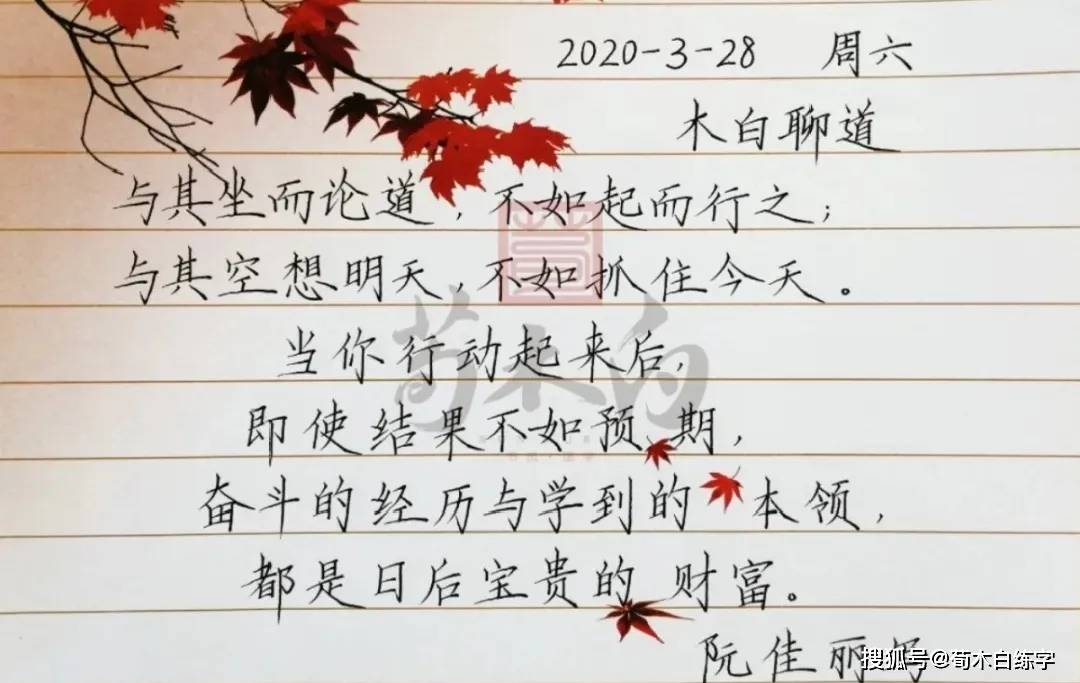 2020-3-28 周六
木白聊道
与其坐而论道，不如起而行之；
与其空想明天，不如抓住今天。
当你行动起来后，
即使结果不如预期，
奋斗的经历与学到的本领，
都是日后宝贵的财富。
阮佳丽
荀木白
搜狐号@荀木白练字